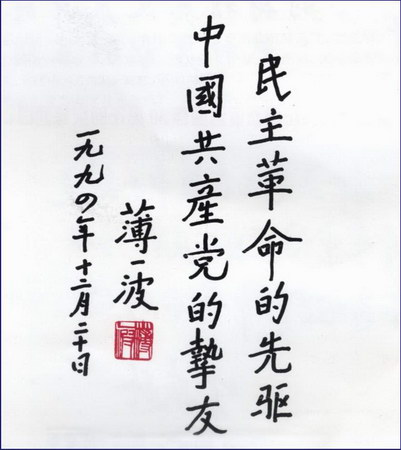 民主革命的先驱
中國共産党的摯友
薄一波
一九九四年十二月二十日